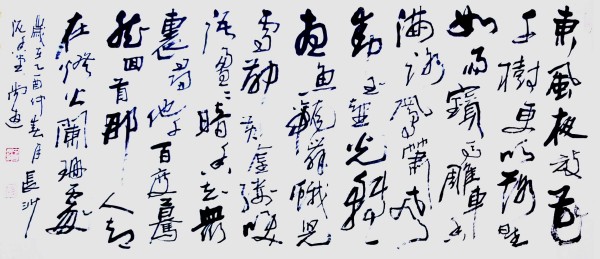 東風夜放花
千樹更吹落星
如雨寶馬雕車香
滿路鳳簫聲
動玉壺光轉一
夜魚龍舞蛾兒
雪柳黃金縷笑
語盈〻暗香去衆
裏尋他千百度驀
然回首那人却
在燈火闌珊處
乙酉仲春月長沙